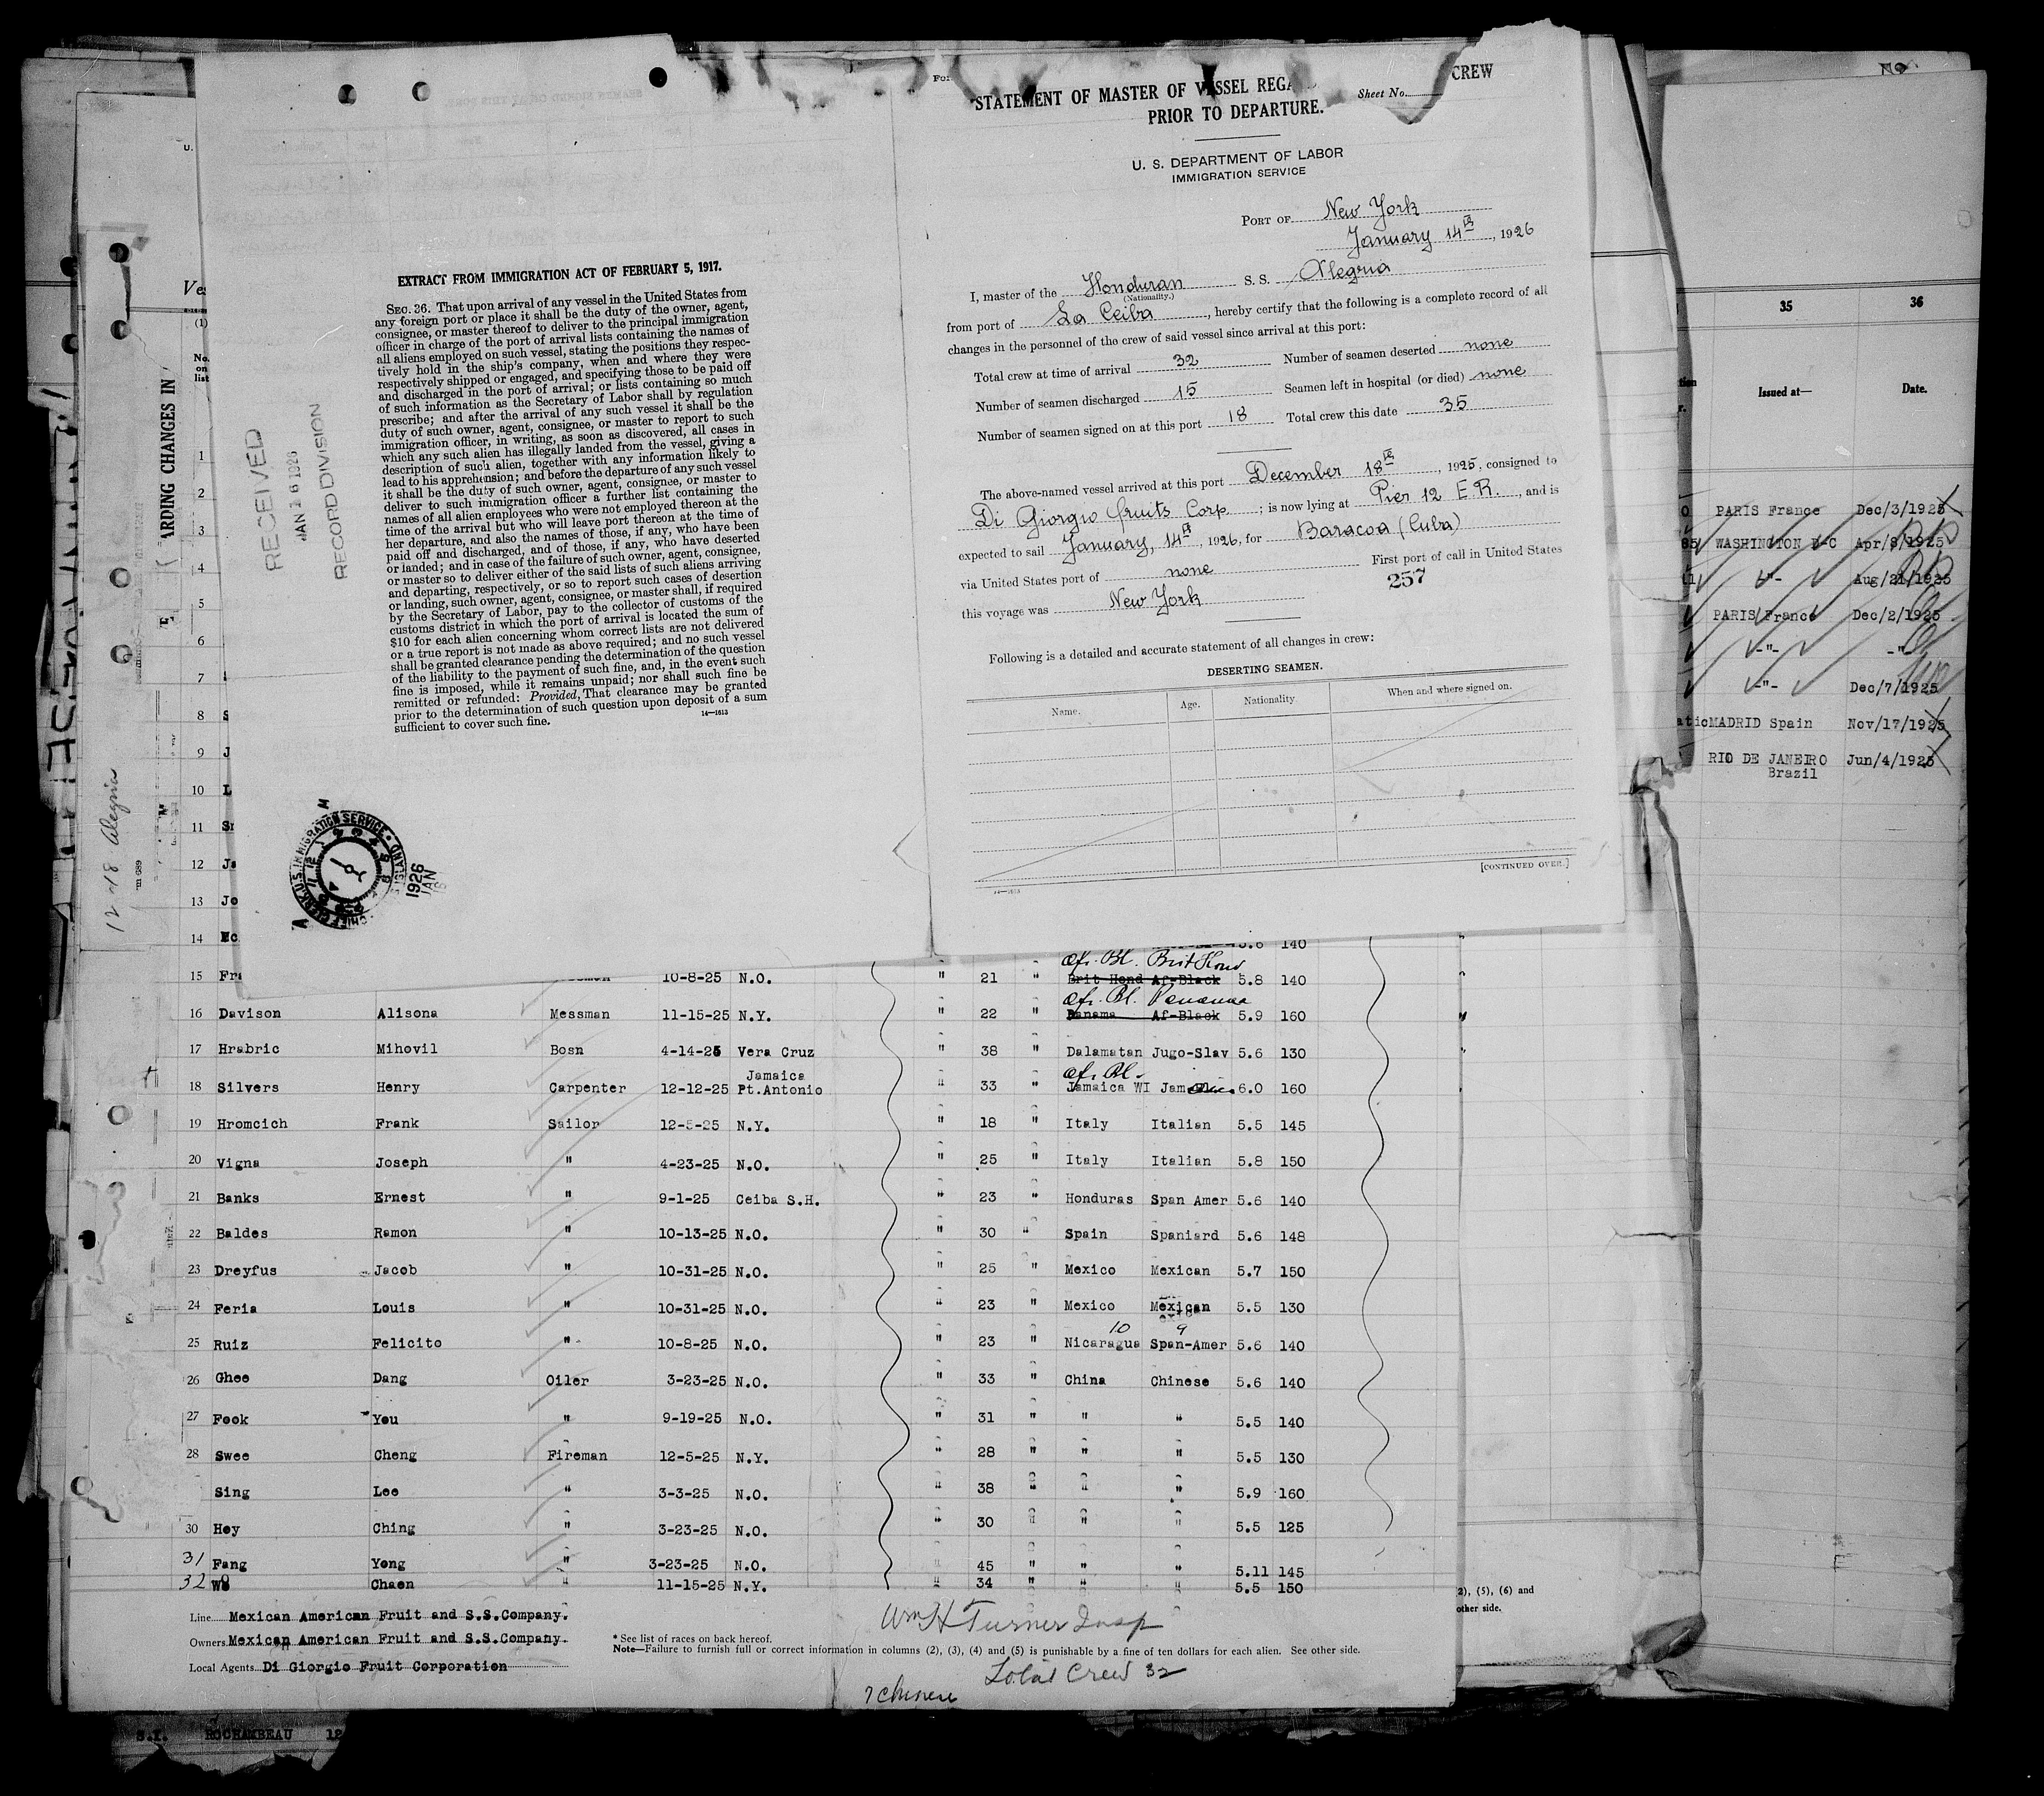 EXTRACT FROM IMMIGRATION ACT OF FEBRUARY 5, 1917.
SEC. 36. That upon arrival of any vessel in the United States from
any foreign port or place it shall be the duty of the owner, agent,
consignee, or master thereof to deliver to the principal immigration
officer in charge of the port of arrival lists containing the names of
all aliens employed on such vessel, stating the positions they respec-
tively hold in the ship's company, when and where they were
respectively shipped or engaged, and specifying those to be paid off
and discharged in the port of arrival; or lists containing so much
of such information as the Secretary of Labor shall by regulation
prescribe; and after the arrival of any such vessel it shall be the
duty of such owner, agent, consignee, or master to report to such
immigration officer, in writing, as soon as discovered, all cases in
which any such alien has illegally landed from the vessel, giving a
description of such alien, together with any information likely to
lead to his apprehension; and before the departure of any such vessel
it shall be the duty of such owner, agent, consignee, or master to
deliver to such immigration officer a further list containing the
names of all alien employees who were not employed thereon at the
time of the arrival but who will leave port thereon at the time of
her departure, and also the names of those, if any, who have been
paid off and discharged, and of those, if any, who have deserted
or landed; and in case of the failure of such owner, agent, consignee,
or master so to deliver either of the said lists of such aliens arriving
and departing, respectively, or so to report such cases of desertion
or landing, such owner, agent, consignee, or master shall, if required
by the Secretary of Labor, pay to the collector of customs of the
customs district in which the port of arrival is located the sum of
$10 for each alien concerning whom correct lists are not delivered
or a true report is not made as above required; and no such vessel
shall be granted clearance pending the determination of the question
of the liability to the payment of such fine, and, in the event such
fine is imposed, while it remains unpaid; nor shall such fine be
remitted or refunded: Provided, That clearance may be granted
prior to the determination of such question upon deposit of a sum
sufficient to cover such fine.
14—1613
RECEIVED
JAN 16 1926
RECORD DIVISION
1926
JAN
ARDING CHANGES IN
12-18 Alegria
CREW
STATEMENT OF MASTER OF VESSEL REGA
Sheet No.
PRIOR TO DEPARTURE.
U. S. DEPARTMENT OF LABOR
IMMIGRATION SERVICE
PORT OF New York
January 14th, 1926
I, master of the Honduran S. S. Alegria
(Nationality.)
from port of La Ceiba, hereby certify that the following is a complete record of all
changes in the personnel of the crew of said vessel since arrival at this port:
Total crew at time of arrival 32 Number of seamen deserted none
Number of seamen discharged 15 Seamen left in hospital (or died) none
Number of seamen signed on at this port 18 Total crew this date 35
The above-named vessel arrived at this port December 18th, 1925, consigned to
Di Giorgio fruits Corp; is now lying at Pier 12 E.R., and is
expected to sail January, 14th, 1926, for Baracoa (Cuba)
via United States port of none First port of call in United States
this voyage was New York 257
Following is a detailed and accurate statement of all changes in crew:
DESERTING SEAMEN.
Name. Age. Nationality When and where signed on.
[CONTINUED OVER.]
35 36
Issued at— Date.
PARIS France Dec/3/1925
WASHINGTON D-C Apr/8/1925
-"- Aug/21/1925
PARIS France Dec/2/1925
-"- -"-
-"- Dec/7/1925
MADRID Spain Nov/17/1925
RIO DE JANEIRO Jun/4/1925
Brazil
No.
on
list
1
2
3
4
5
6
7
8
9
10
11
12
13
14 5.6 140
Af. Bl. Brit Hond
15 Fra 10-8-25 N.O. " 21 " Brit Hond Af-Black 5.8 140
Af. Bl. Panama
16 Davison Alisona Messman 11-15-25 N.Y. " 22 " Panama Af-Black 5.9 160
17 Hrabric Mihovil Bosn 4-14-25 Vera Cruz " 38 " Dalamatan Jugo-Slav 5.6 130
Jamaica Af. Bl.
18 Silvers Henry Carpenter 12-12-25 Pt.Antonio " 33 " Jamaica WI 6.0 160
19 Hromcich Frank Sailor 12-5-25 N.Y. " 18 " Italy Italian 5.5 145
20 Vigna Joseph " 4-23-25 N.O. " 25 " Italy Italian 5.8 150
21 Banks Ernest " 9-1-25 Ceiba S.H. " 23 " Honduras Span Amer 5.6 140
22 Baldes Ramon " 10-13-25 N.O. " 30 " Spain Spaniard 5.6 148
23 Dreyfus Jacob " 10-31-25 N.O. " 25 " Mexico Mexican 5.7 150
24 Feria Louis " 10-31-25 N.O. " 23 " Mexico Mexican 5.5 130
10 9
25 Ruiz Felicito " 10-8-25 N.O. " 23 " Nicaragua Span-Amer 5.6 140
26 Ghee Dang Oiler 3-23-25 N.O. " 33 " China Chinese 5.6 140
27 Fook You " 9-19-25 N.O. " 31 " " " 5.5 140
28 Swee Cheng Fireman 12-5-25 N.Y. " 28 " " " 5.5 130
Sing Lee " 3-3-25 N.O. " 38 " " " 5.9 160
30 Hoy Ching " 3-23-25 N.O. " 30 " " " 5.5 125
31 Fang Yong " 3-23-25 N.O. " 45 " " " 5.11 145
32 Wo Chaen " 11-15-25 N.Y. " 34 " " " 5.5 150
Line Mexican American Fruit and S.S.Company.
Owners Mexican American Fruit and S.S.Company.
Local Agents Di Giorgio Fruit Corporation
Wm H Turner Insp
* See list of races on back hereof.
Note—Failure to furnish full or correct information in columns (2), (3), (4) and (5) is punishable by a fine of ten dollars for each alien. See other side.
Total Crew 32
7 Chinese
2), (5), (6) and
other side.
S.I. ROCHAMBEAU 12